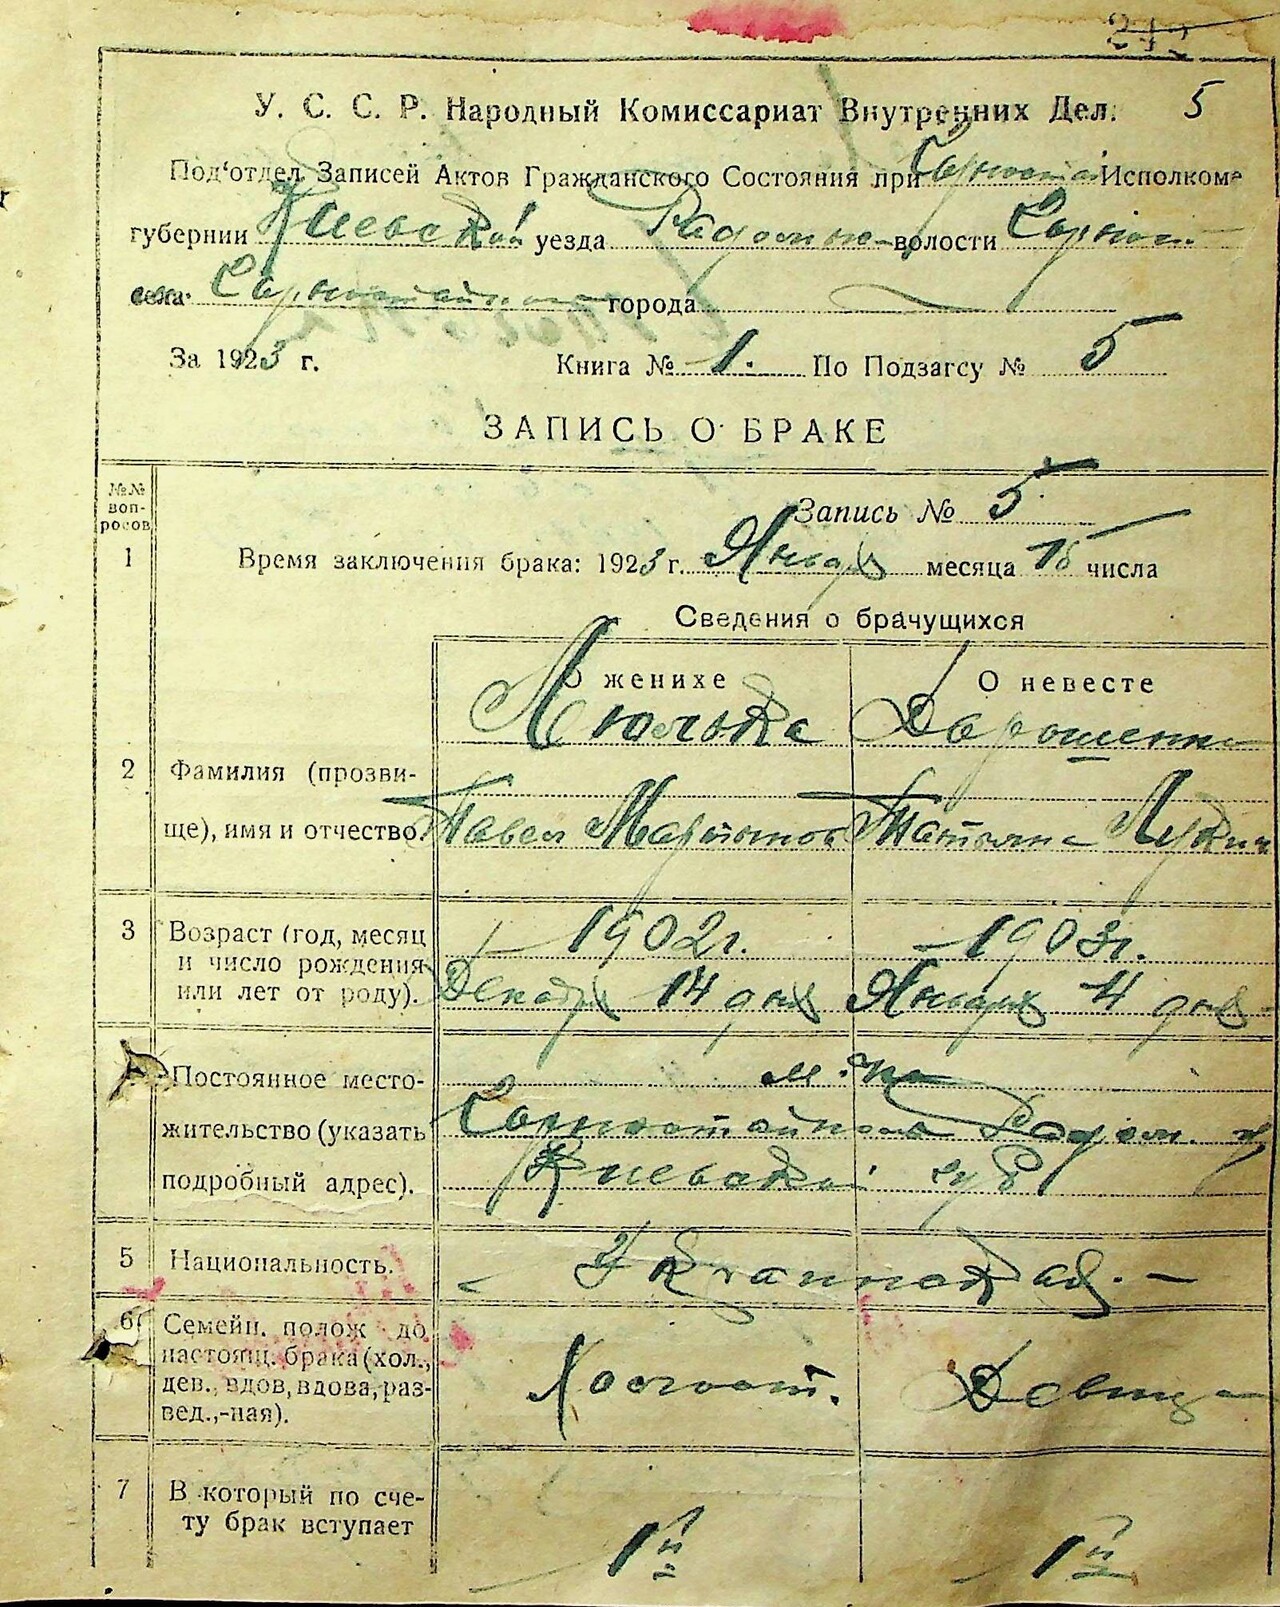 212
У. С. С. Р. Народный Комиссариат Внутренних Дел. 5
Под'отдел Записей Актов Гражданского Состояния при Исполкоме
губернии Киевской уезда Радомы волости
села города
За 1923 г. Книга № 1. По Подзагсу № 5
ЗАПИСЬ О БРАКЕ
№№ вопросов
Запись № 5
1 Время заключения брака: 1923 г. Январ месяца 15 числа
Сведения о брачущихся
О женихе О невесте
Люлька Дорошенко
2 Фамилия (прозви-
ще), имя и отчество. Павел Мартынов Татьяна Лукин
3 Возраст (год, месяц 1902г. 1903г.
и число рождения
или лет от роду). Декабря 14 дня Января 4 дня
м-ко
Постоянное место-
жительство (указать Горностайполь Радом. у
подробный адрес). Киевской губ
5 Национальность. Украинская. —
6 Семейн. полож до
настоящ. брака (хол.,
дев., вдов, вдова, раз- Холост. Девица
вед.,-ная).
7 В который по сче-
ту брак вступает 1й 1й